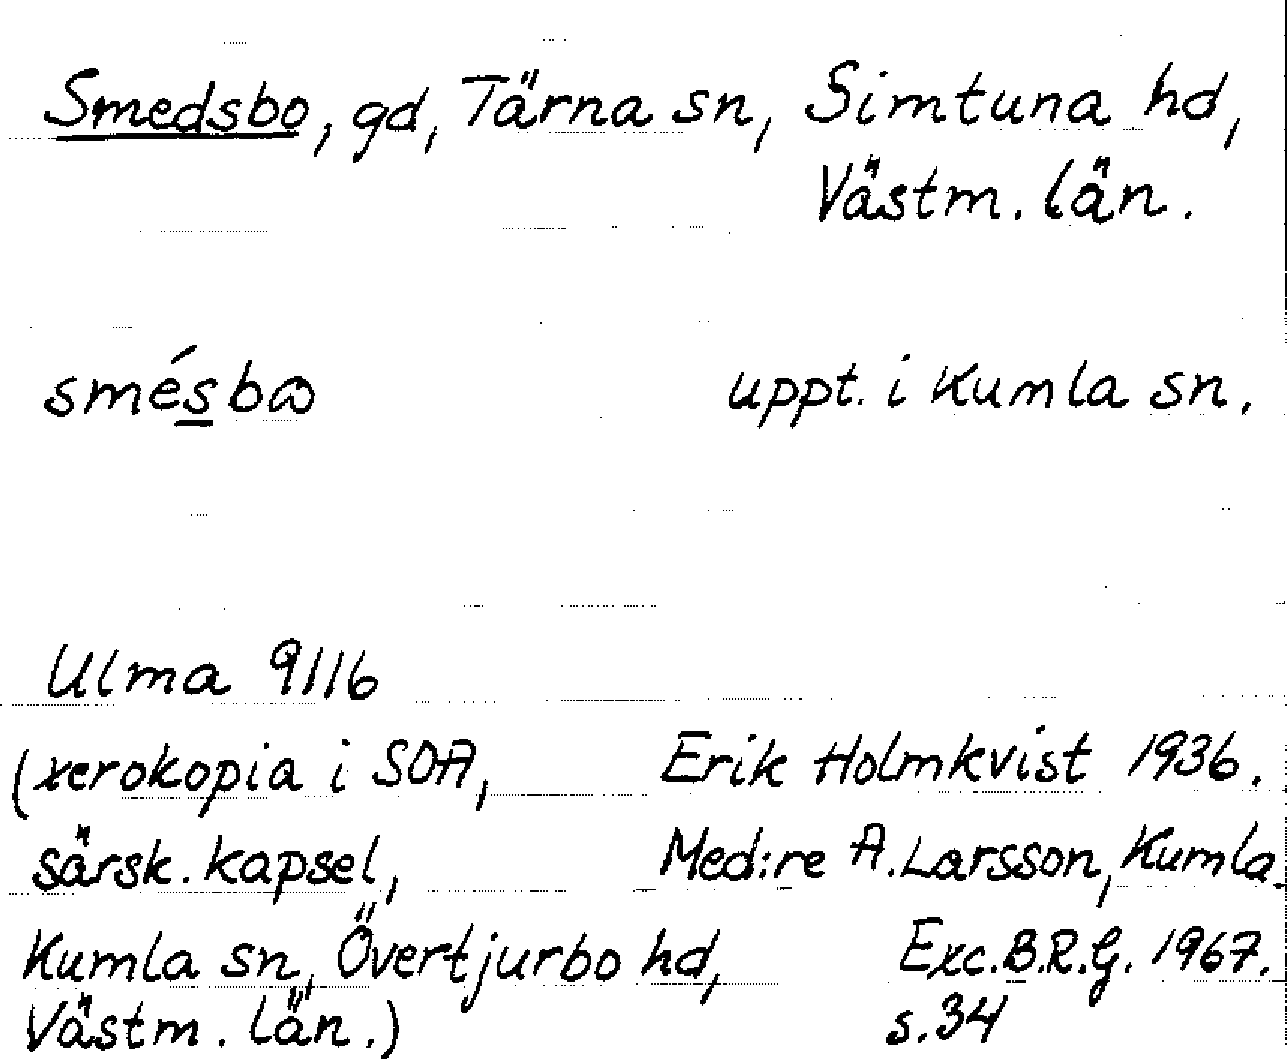 Smedsbo, gd, Tärna sn, Simtuna hd,
Västm. län.
smésbɷ uppt. i Kumla sn.
Ulma 9116
(xerokopia i SOA, Erik Holmkvist 1936.
särsk. kapsel, Med:re A. Larsson, Kumla.
Kumla sn, Övertjurbo hd, Exc. B.R.G. 1967.
Västm. län.) s. 34